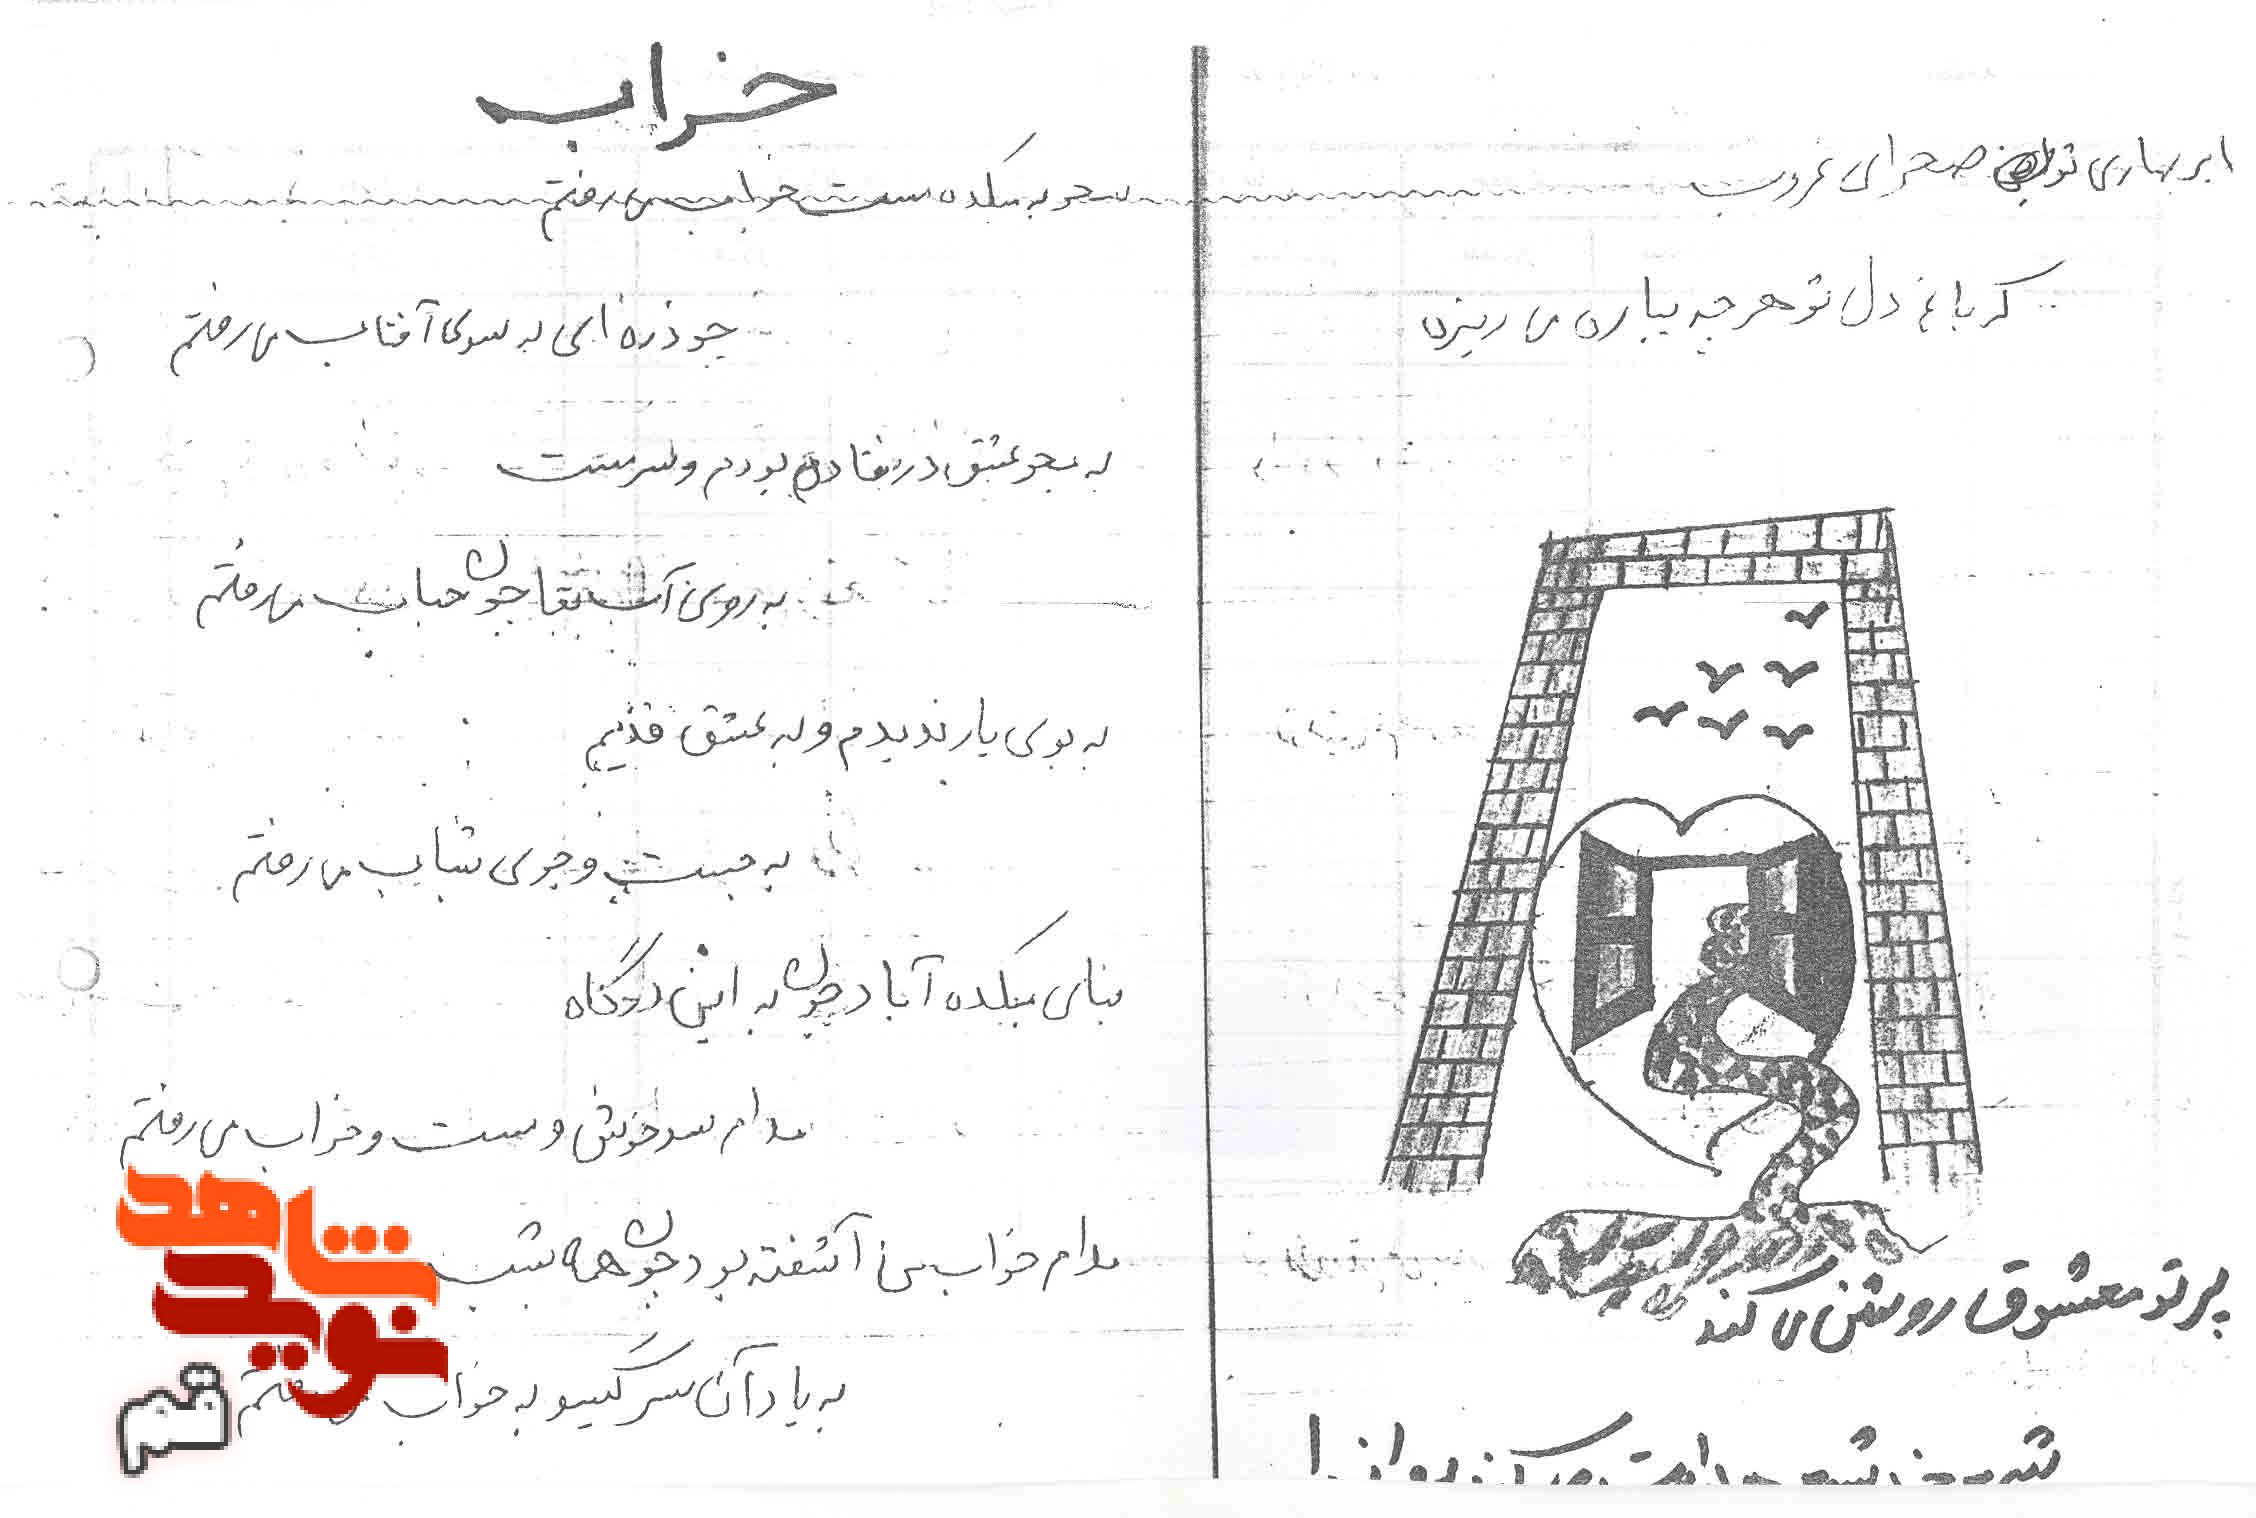 ابر بهاری تو صحرای غروب
که باغ دل تو هر چه بباره می ریزه
پرتو معشوق روشن می کند
خراب
سحر به میکده مست خراب می رفتم
چو ذره ای به سوی آفتاب می رفتم
به بحر عشق در افتاده بودم و سرمست
به روی آب بقا چون حباب می رفتم
به بوی یار ندیدم و به عشق قدیم
به جست و جوی شتاب می رفتم
بنای میکده آباد چون به این درگاه
مدام سرخوش و مست و خراب می رفتم
مدام خواب من آشفته بود چون همه شب
به یاد آن سر گیسو به خواب می رفتم
شاهد
نوید
قم